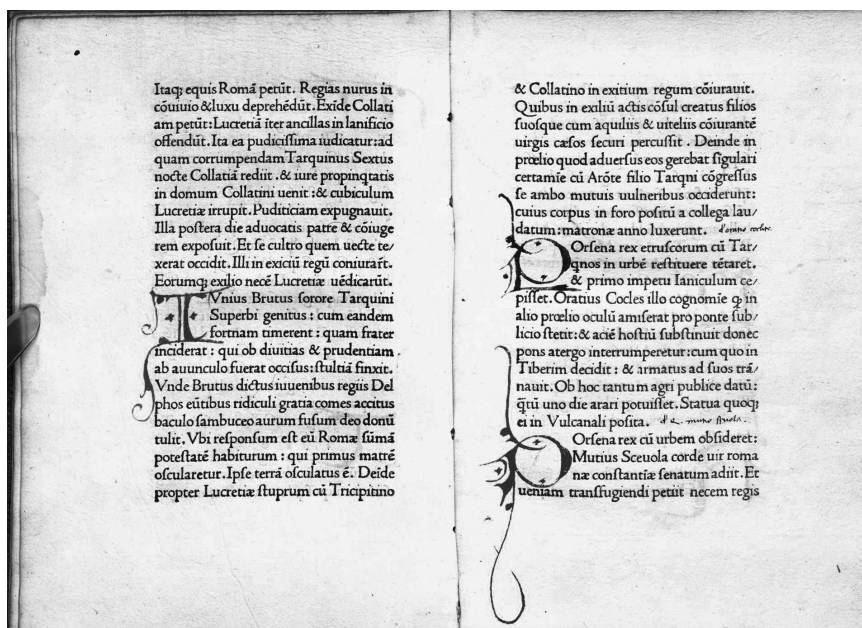 Itaq; equis Romā petūt. Regias nurus in
cōuiuio & luxu deprehēdūt. Exīde Collati
am petūt: Lucretiā īter ancillas in lanificio
offendūt. Ita ea pudicissima iudicatur: ad
quam corrumpendam Tarquinus Sextus
nocte Collatiā rediit . & iure propinqtatis
in domum Collatini uenit : & cubiculum
Lucretiæ irrupit. Puditiciam expugnauit.
Illa postera die aduocatis patre & cōiuge
rem exposuit. Et se cultro quem ueste te/
xerat occidit. Illi in exiciū regū coniurar̄t.
Eorumq; exilio necē Lucretiæ uēdicarūt.
IVnius Brutus sorore Tarquini
Superbi genitus : cum eandem
fortnam timerent : quam frater
inciderat : qui ob diuitias & prudentiam
ab auunculo fuerat occisus: stultiā finxit.
Vnde Brutus dictus iuuenibus regiis Del
phos eūtibus ridiculi gratia comes accitus
baculo sambuceo aurum fusum deo donū
tulit. Vbi responsum est eū Romæ sūmā
potestatē habiturum : qui primus matrē
oscularetur. Ipse terrā osculatus ē. Deīde
propter Lucretiæ stuprum cū Tricipitino
& Collatino in exitium regum cōiurauit.
Quibus in exiliū actis cōsul creatus filios
suosque cum aquiliis & uiteliis cōiurantē
uirgis cæsos securi percussit . Deinde in
prœlio quod aduersus eos gerebat sīgulari
certamīe cū Arōte filio Tarqni cōgressus
se ambo mutuis uulneribus occiderunt:
cuius corpus in foro positū a collega lau/
datum: matronæ anno luxerunt.
POrsena rex etruscorum cū Tar/
qnos in urbē restituere tētaret.
& primo impetu Ianiculum ce/
pisset. Oratius Cocles illo cognomīe ꝙ in
alio prœlio oculū amiserat pro ponte sub/
licio stetit: & aciē hostiū substinuit donec
pons atergo interrumperetur: cum quo in
Tiberim decidit : & armatus ad suos trā/
nauit. Ob hoc tantum agri publice datū:
q̄tū uno die arari potuisset. Statua quoq;
ei in Vulcanali posita.
POrsena rex cū urbem obsideret:
Mutius Sceuola corde uir roma
næ constantīæ senatum adiit. Et
ueniam transfugiendi petiit necem regis